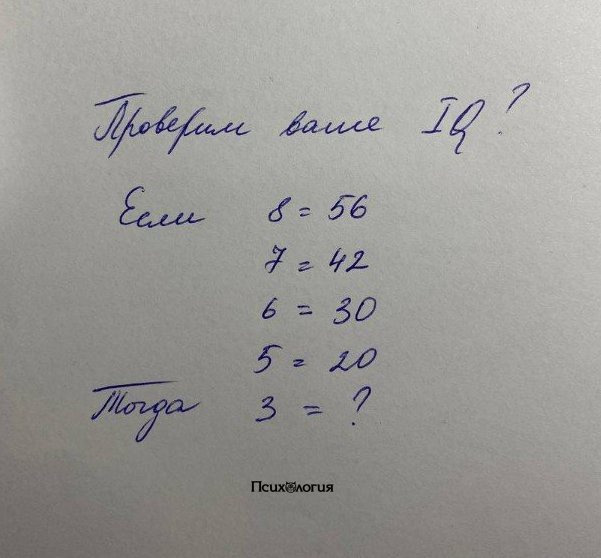 Проверим ваше IQ?
Если 8 = 56
7 = 42
6 = 30
5 = 20
Тогда 3 = ?
Психология